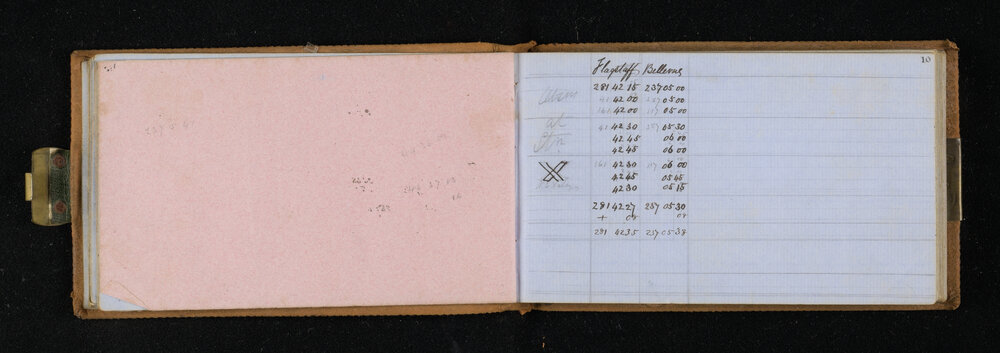 10
Flagstaff Bellevue
281 42 15 237 05 00
41 42 00 237 05 00
161 42 00 117 05 00
at
41 42 30 237 05 30
Stn
42 45 06 00
42 45 06 00
161 42 30 117 06 00
42 45 05 45
42 30 05 15
281 42 27 237 05 30
+ 08 08
281 42 35 237 05 38